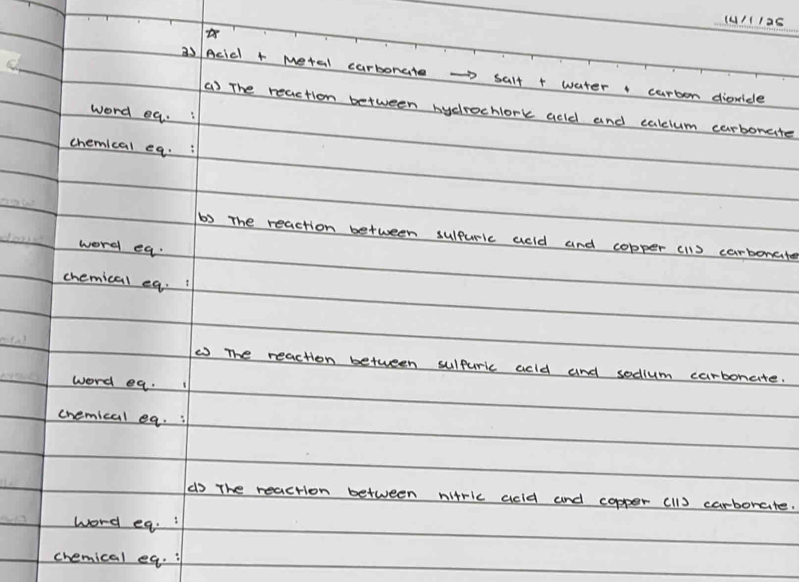 14/1/26
☆
3) Acid + Metal carbonate → salt + water + carbon dioxide
a) The reaction between hydrochloric acid and calcium carbonate
word eq. :
chemical eq. :
b) The reaction between sulfuric acid and copper (II) carbonate
word eq.
chemical eq. :
c) The reaction between sulfuric acid and sodium carbonate.
word eq. :
chemical eq. :
d) The reaction between nitric acid and copper (II) carbonate.
word eq. :
chemical eq. :